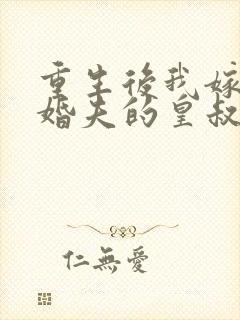 重生後我嫁
婚夫的皇叔
仁無愛